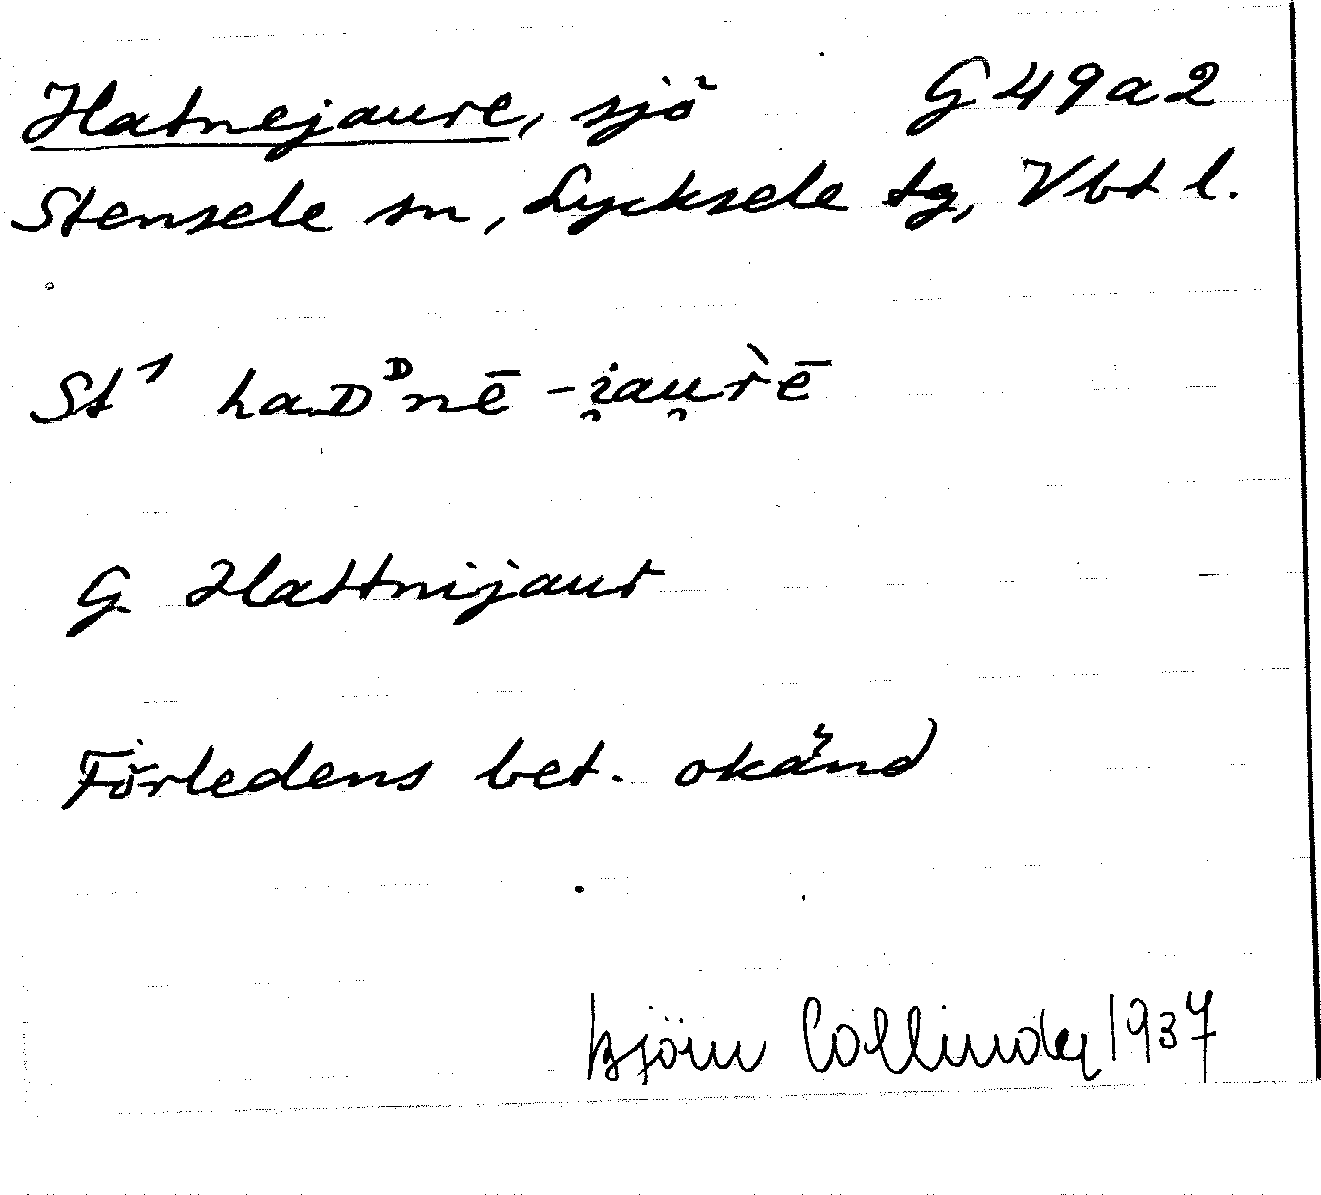 Hatnejaure, sjö G 49 a 2
Stensele sn, Lycksele tg, Vbt l.
St¹ haDᴰnē -i̯au̯r̀ē
G Hattnijaur
Förledens bet. okänd
Björn Collinder 1937